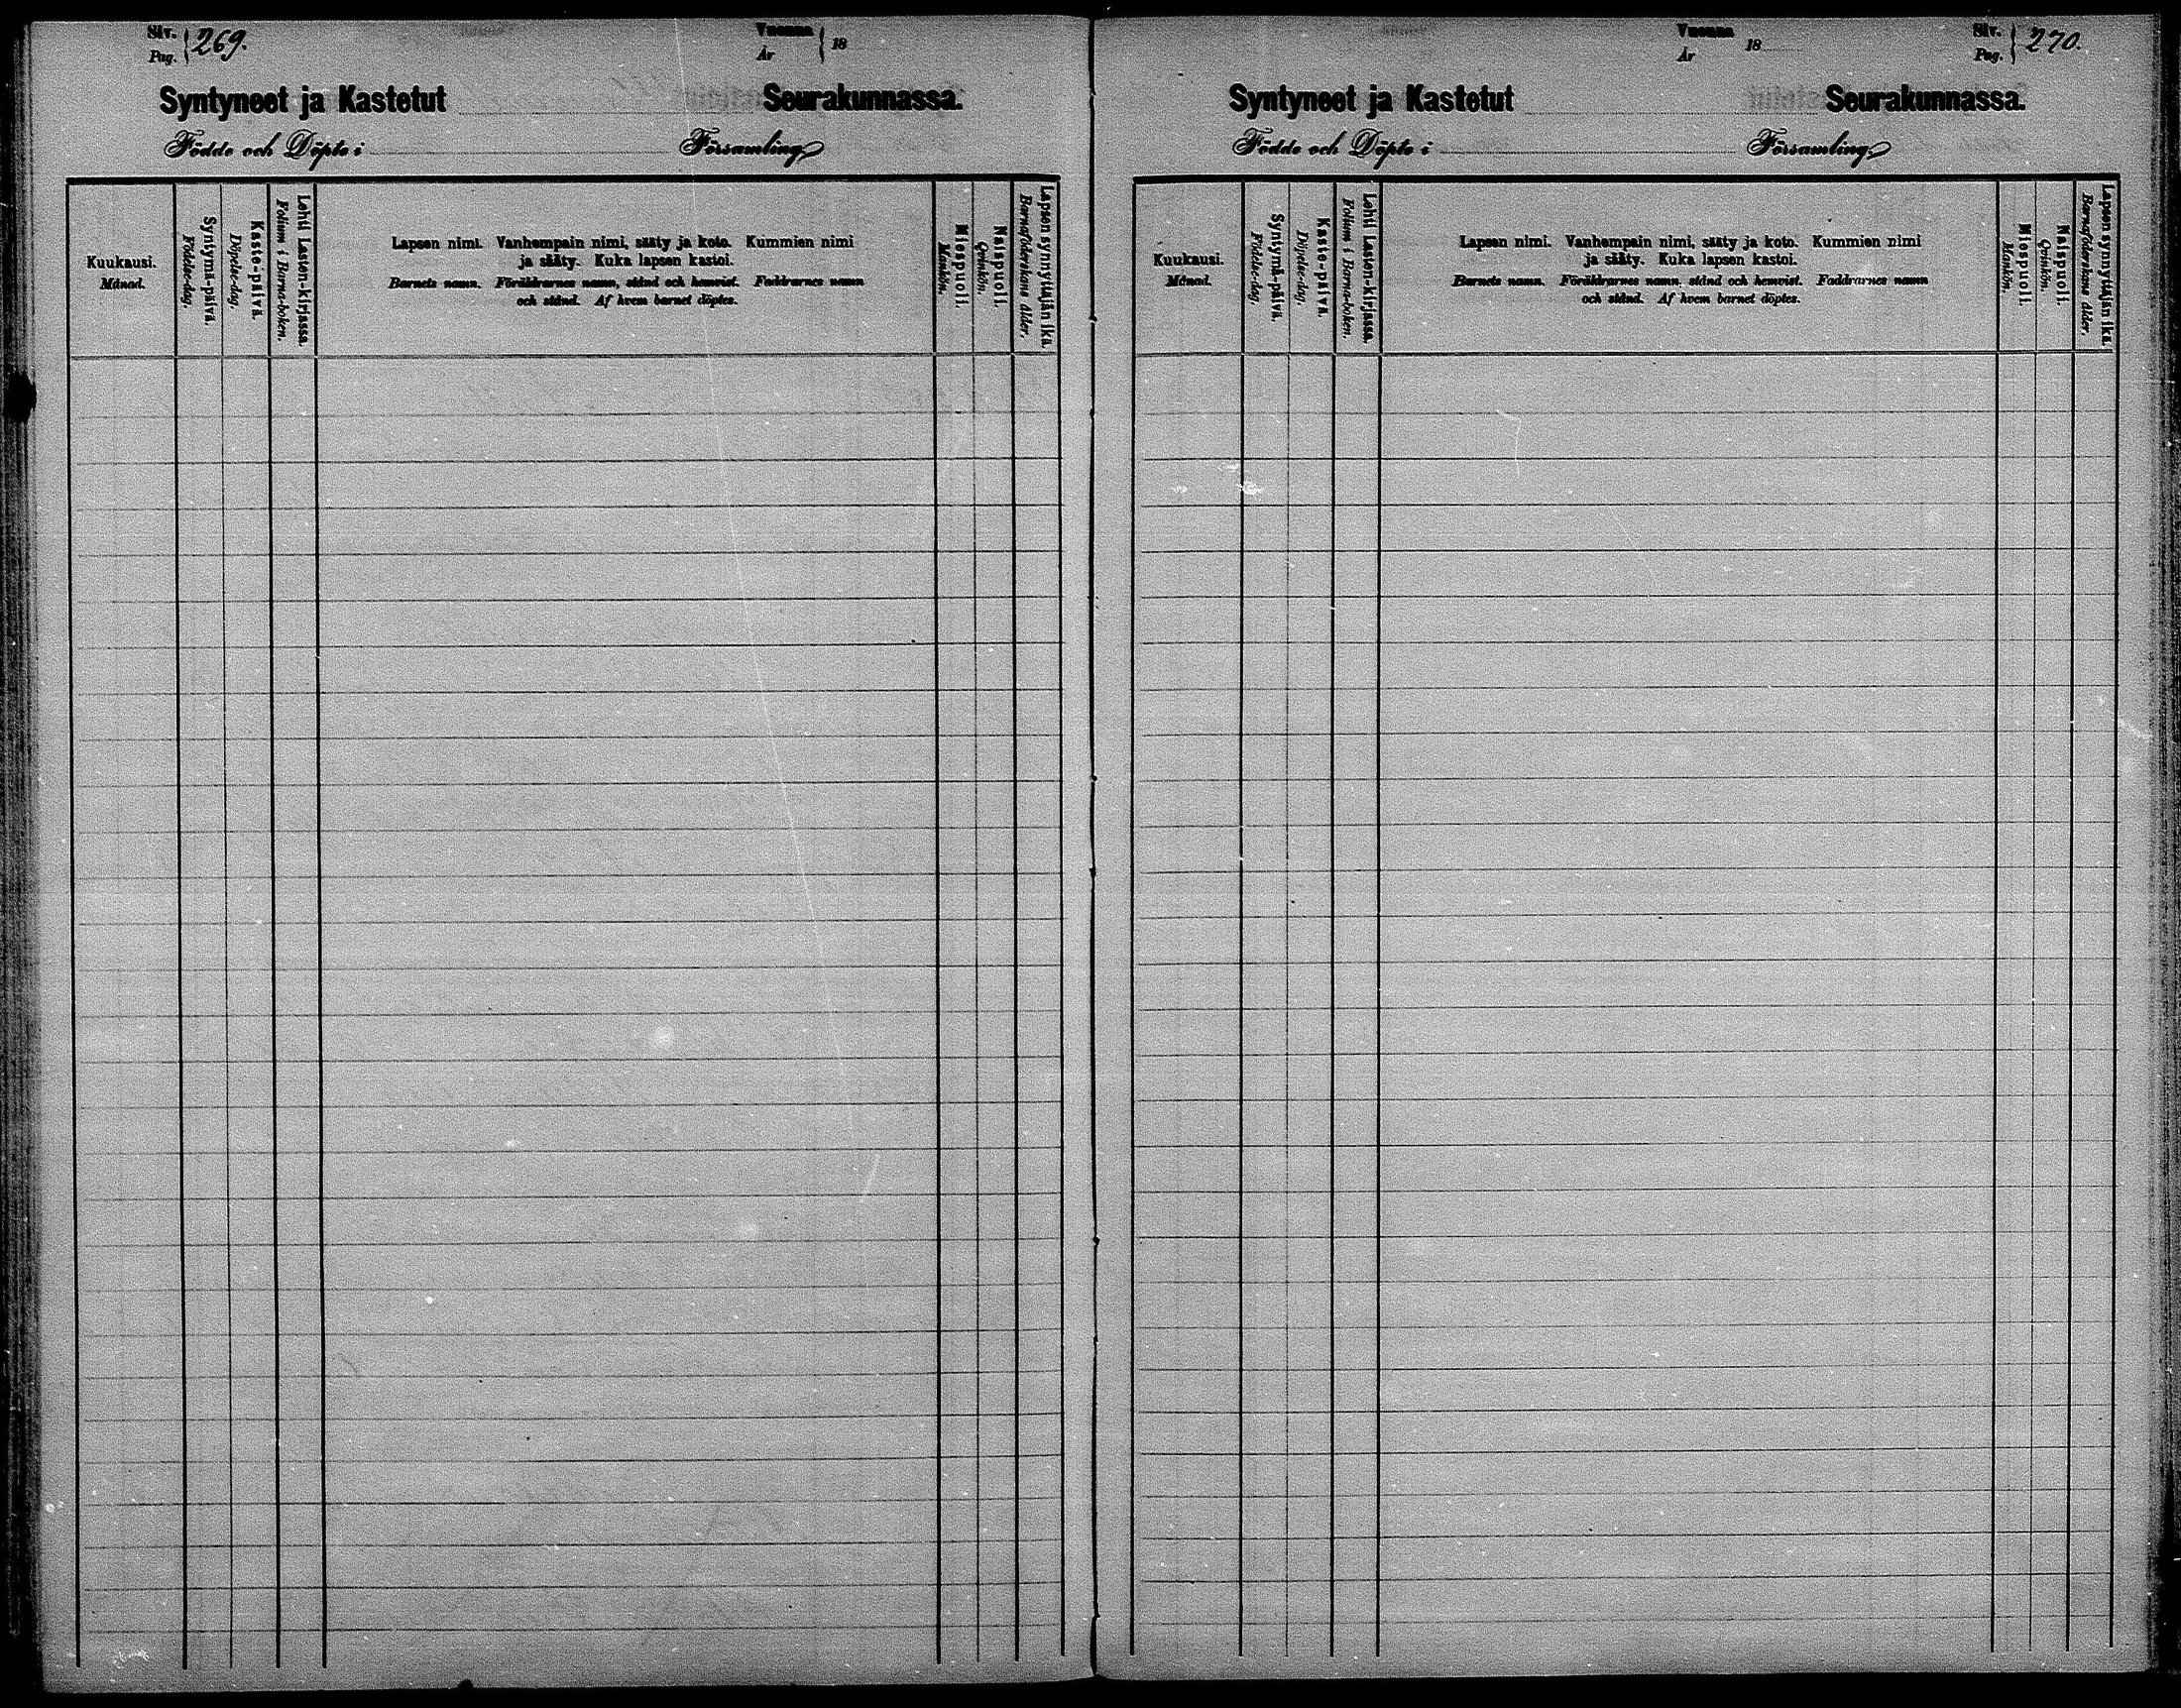 Siv. Pag. 269.
Vuonna År 18
Syntyneet ja Kastetut Seurakunnassa.
Födde och Döpte i Församling
Kuukausi.
Månad.
Syntymä-päivä.
Födelse-dag.
Kaste-päivä.
Döpelse-dag.
Lehti Lasten-kirjassa.
Folium i Barna-boken.
Lapsen nimi. Vanhempain nimi, sääty ja koto. Kummien nimi
ja sääty. Kuka lapsen kastoi.
Barnets namn. Föräldrarnes namn, stånd och hemvist. Faddrarnes namn
och stånd. Af hvem barnet döptes.
Miespuoli.
Mankön.
Naispuoli.
Qvinkön.
Lapsen synnyttäjän ikä.
Barnaföderskans ålder.
Vuonna År 18
Siv. Pag. 270.
Syntyneet ja Kastetut Seurakunnassa.
Födde och Döpte i Församling.
Kuukausi.
Månad.
Syntymä-päivä.
Födelse-dag.
Kaste-päivä.
Döpelse-dag.
Lehti Lasten-kirjassa.
Folium i Barna-boken.
Lapsen nimi. Vanhempain nimi, sääty ja koto. Kummien nimi
ja sääty. Kuka lapsen kastoi.
Barnets namn. Föräldrarnes namn, stånd och hemvist. Faddrarnes namn
och stånd. Af hvem barnet döptes.
Miespuoli.
Mankön.
Naispuoli.
Qvinkön.
Lapsen synnyttäjän ikä.
Barnaföderskans ålder.